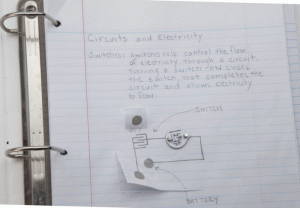 Circuits and Electricity
Switches: switches control the flow
of electricity through a circuit.
Turning a switch on closes
the switch, that completes the
circuit and allows electricity
to flow.
SWITCH
BATTERY